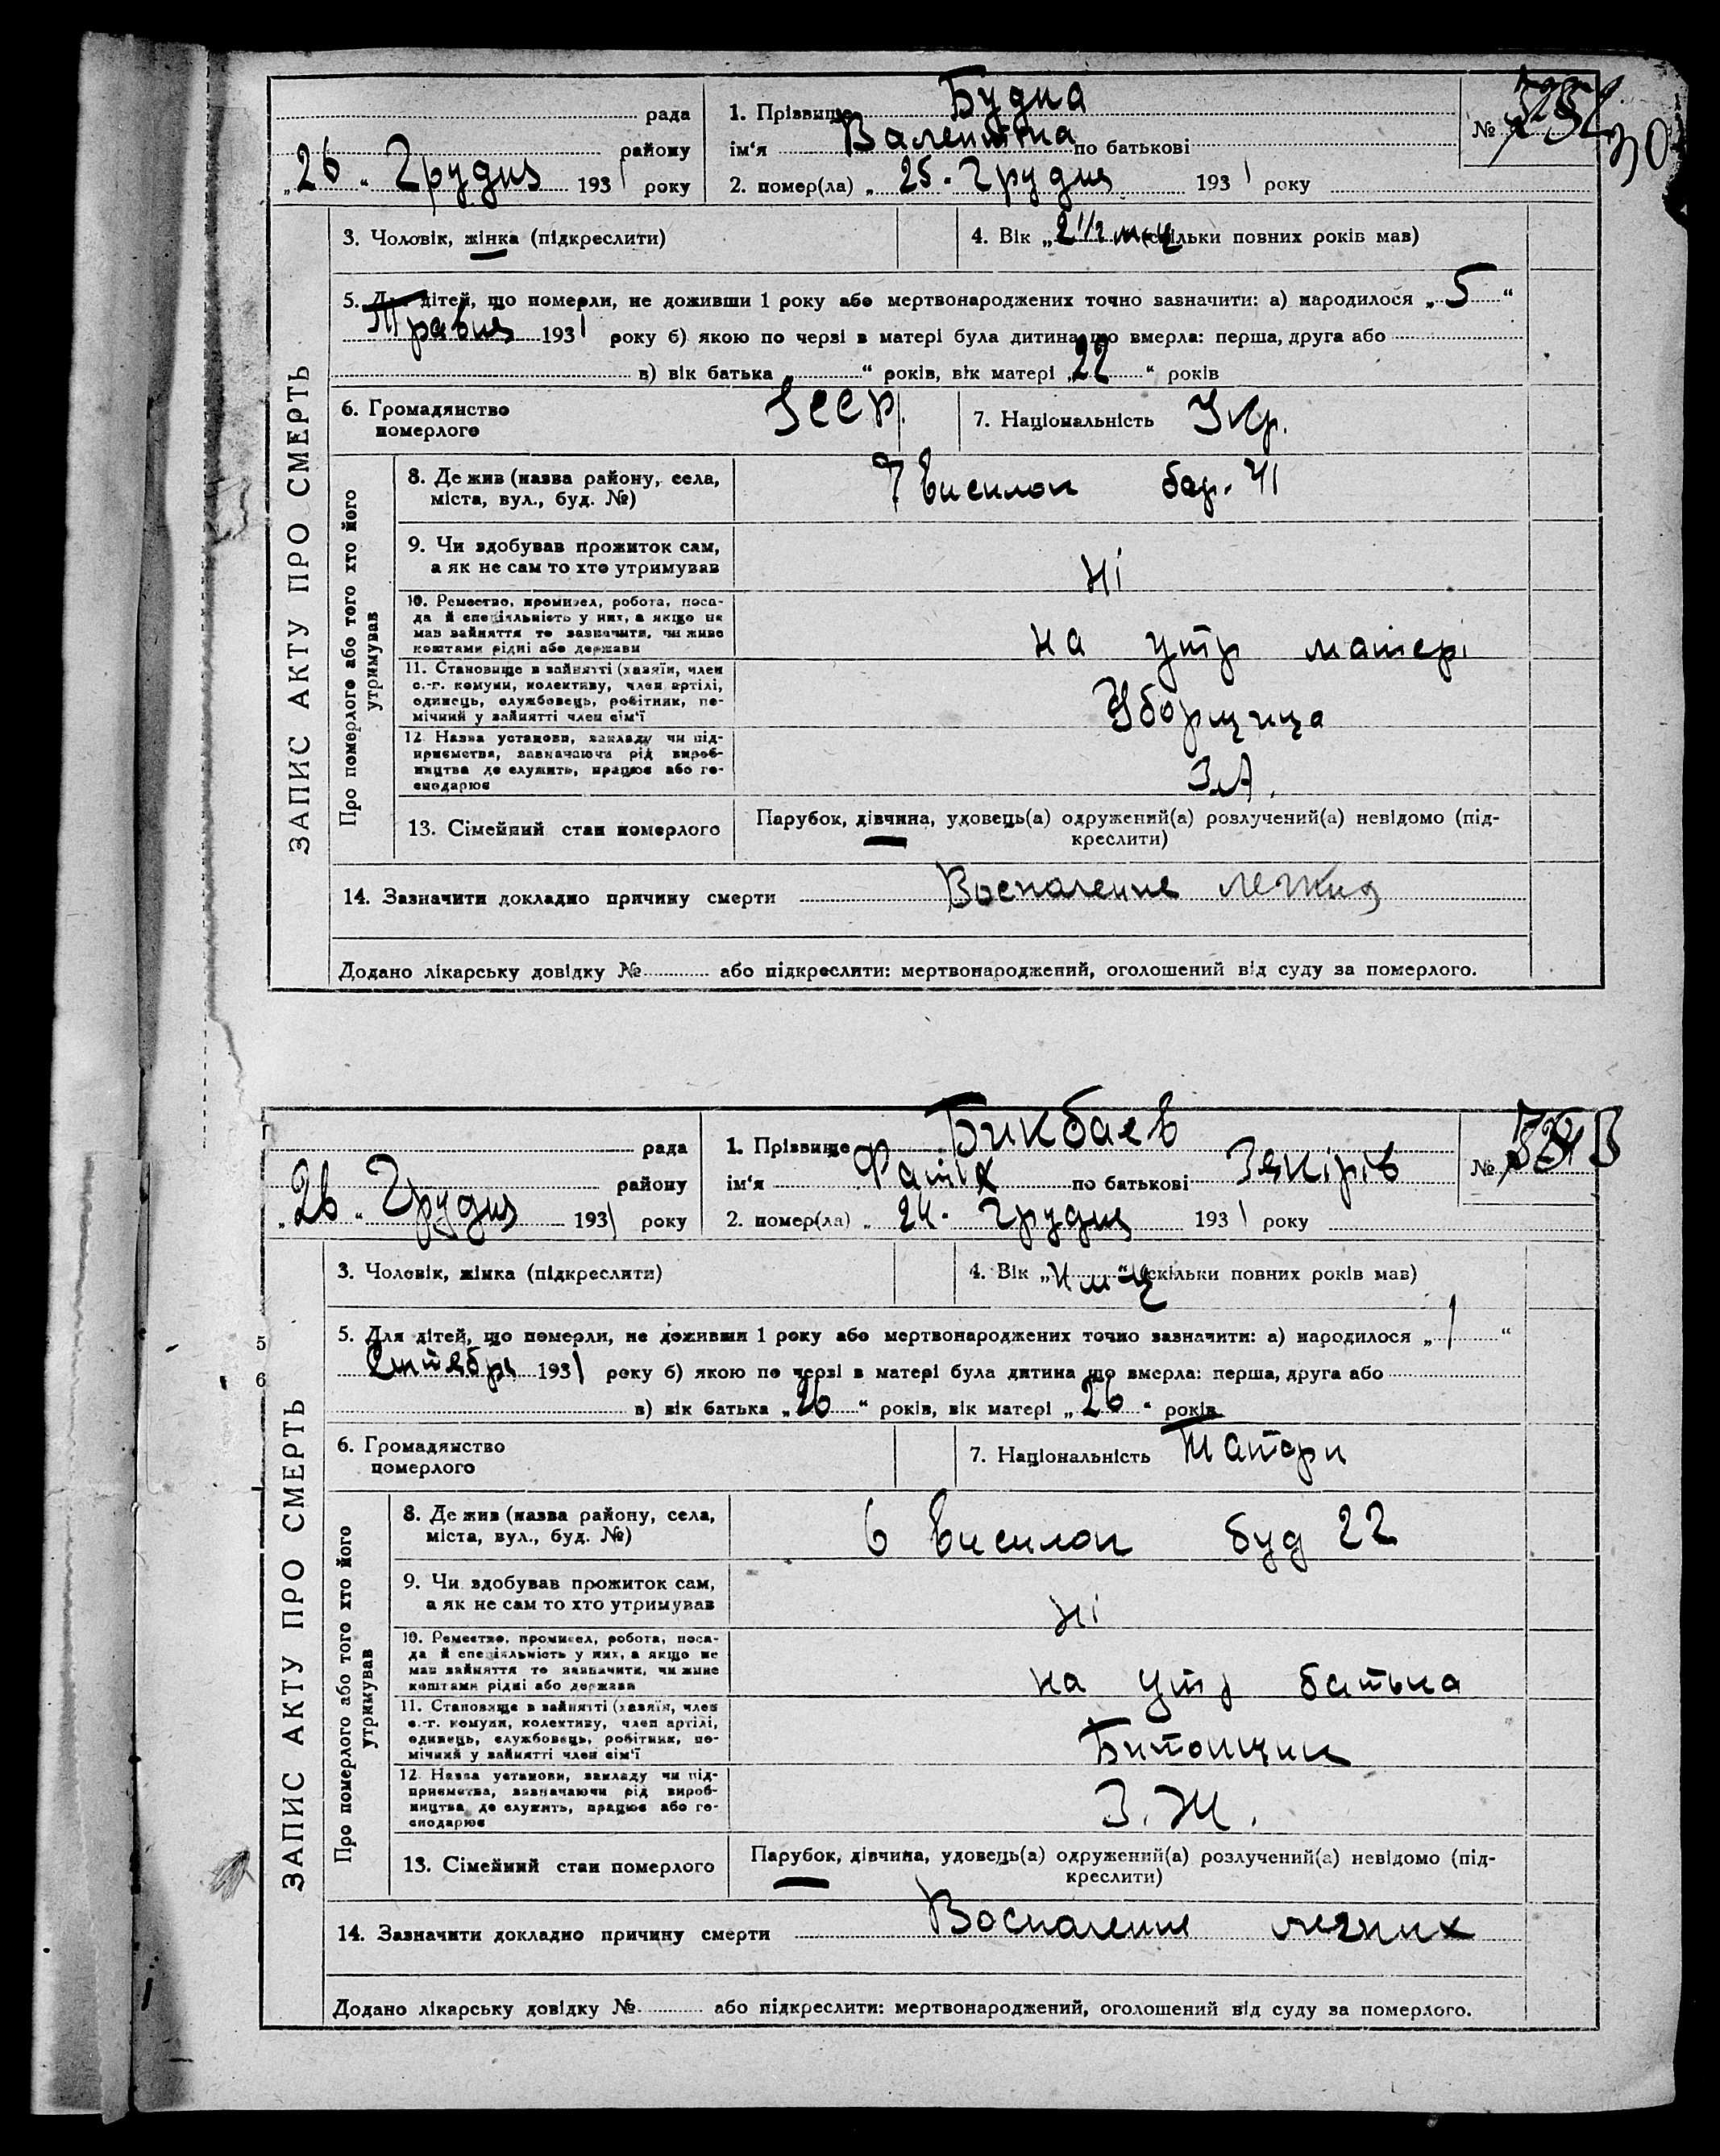 рада
району
„26“ Грудня 1931 року
1. Прізвище Будна
ім'я Валентина по батькові
2. помер(ла) „25“ Грудня 1931 року
№
30
3. Чоловік, жінка (підкреслити)
4. Вік „2 1/2 мец“ (скільки повних років мав)
5. Для дітей, що померли, не доживши 1 року або мертвонароджених точно зазначити: а) народилося „5“
Травня 1931 року б) якою по черзі в матері була дитина що вмерла: перша, друга або
в) вік батька „ “ років, вік матері „22“ років
6. Громадянство
померлого
УССР.
7. Національність Укр.
ЗАПИС АКТУ ПРО СМЕРТЬ
Про померлого або того хто його
утримував
8. Де жив (назва району, села,
міста, вул., буд. №)
7 висилок бар. 41
9. Чи здобував прожиток сам,
а як не сам то хто утримував
Ні
10. Ремество, промисел, робота, поса-
да й спеціяльність у них, а якщо не
мав зайняття то зазначити, чи живе
коштами рідні або держави
на утр матері
11. Становище в зайнятті (хазяїн, член
с.-г. комуни, колективу, член артілі,
одинець, службовець, робітник, по-
мічний у зайнятті член сім'ї
Уборщица
12. Назва установи, закладу чи під-
приємства, зазначаючи рід вироб-
ництва де служить, працює або го-
сподарює
З.А.
13. Сімейний стан померлого
Парубок, дівчина, удовець(а) одружений(а) розлучений(а) невідомо (під-
креслити)
14. Зазначити докладно причину смерти Воспаление легких
Додано лікарську довідку № або підкреслити: мертвонароджений, оголошений від суду за померлого.
рада
району
„26“ Грудня 1931 року
1. Прізвище Бикбаев
ім'я Фатіх по батькові Закірів
2. помер(ла) „24“ Грудня 1931 року
№
3. Чоловік, жінка (підкреслити)
4. Вік „4 м-ц“ (скільки повних років мав)
5
6
5. Для дітей, що померли, не доживши 1 року або мертвонароджених точно зазначити: а) народилося „1“
1931 року б) якою по черзі в матері була дитина що вмерла: перша, друга або
в) вік батька „26“ років, вік матері „26“ років
6. Громадянство
померлого
7. Національність Татари
ЗАПИС АКТУ ПРО СМЕРТЬ
Про померлого або того хто його
утримував
8. Де жив (назва району, села,
міста, вул., буд. №)
6 висилок буд 22
9. Чи здобував прожиток сам,
а як не сам то хто утримував
Ні
10. Ремество, промисел, робота, поса-
да й спеціяльність у них, а якщо не
мав зайняття то зазначити, чи живе
коштами рідні або держави
на утр батька
11. Становище в зайнятті (хазяїн, член
с.-г. комуни, колективу, член артілі,
одинець, службовець, робітник, по-
мічний у зайнятті член сім'ї
Битонщик
12. Назва установи, закладу чи під-
приємства, зазначаючи рід вироб-
ництва де служить, працює або го-
сподарює
З. Ж.
13. Сімейний стан померлого
Парубок, дівчина, удовець(а) одружений(а) розлучений(а) невідомо (під-
креслити)
14. Зазначити докладно причину смерти Воспаление легких
Додано лікарську довідку № або підкреслити: мертвонароджений, оголошений від суду за померлого.